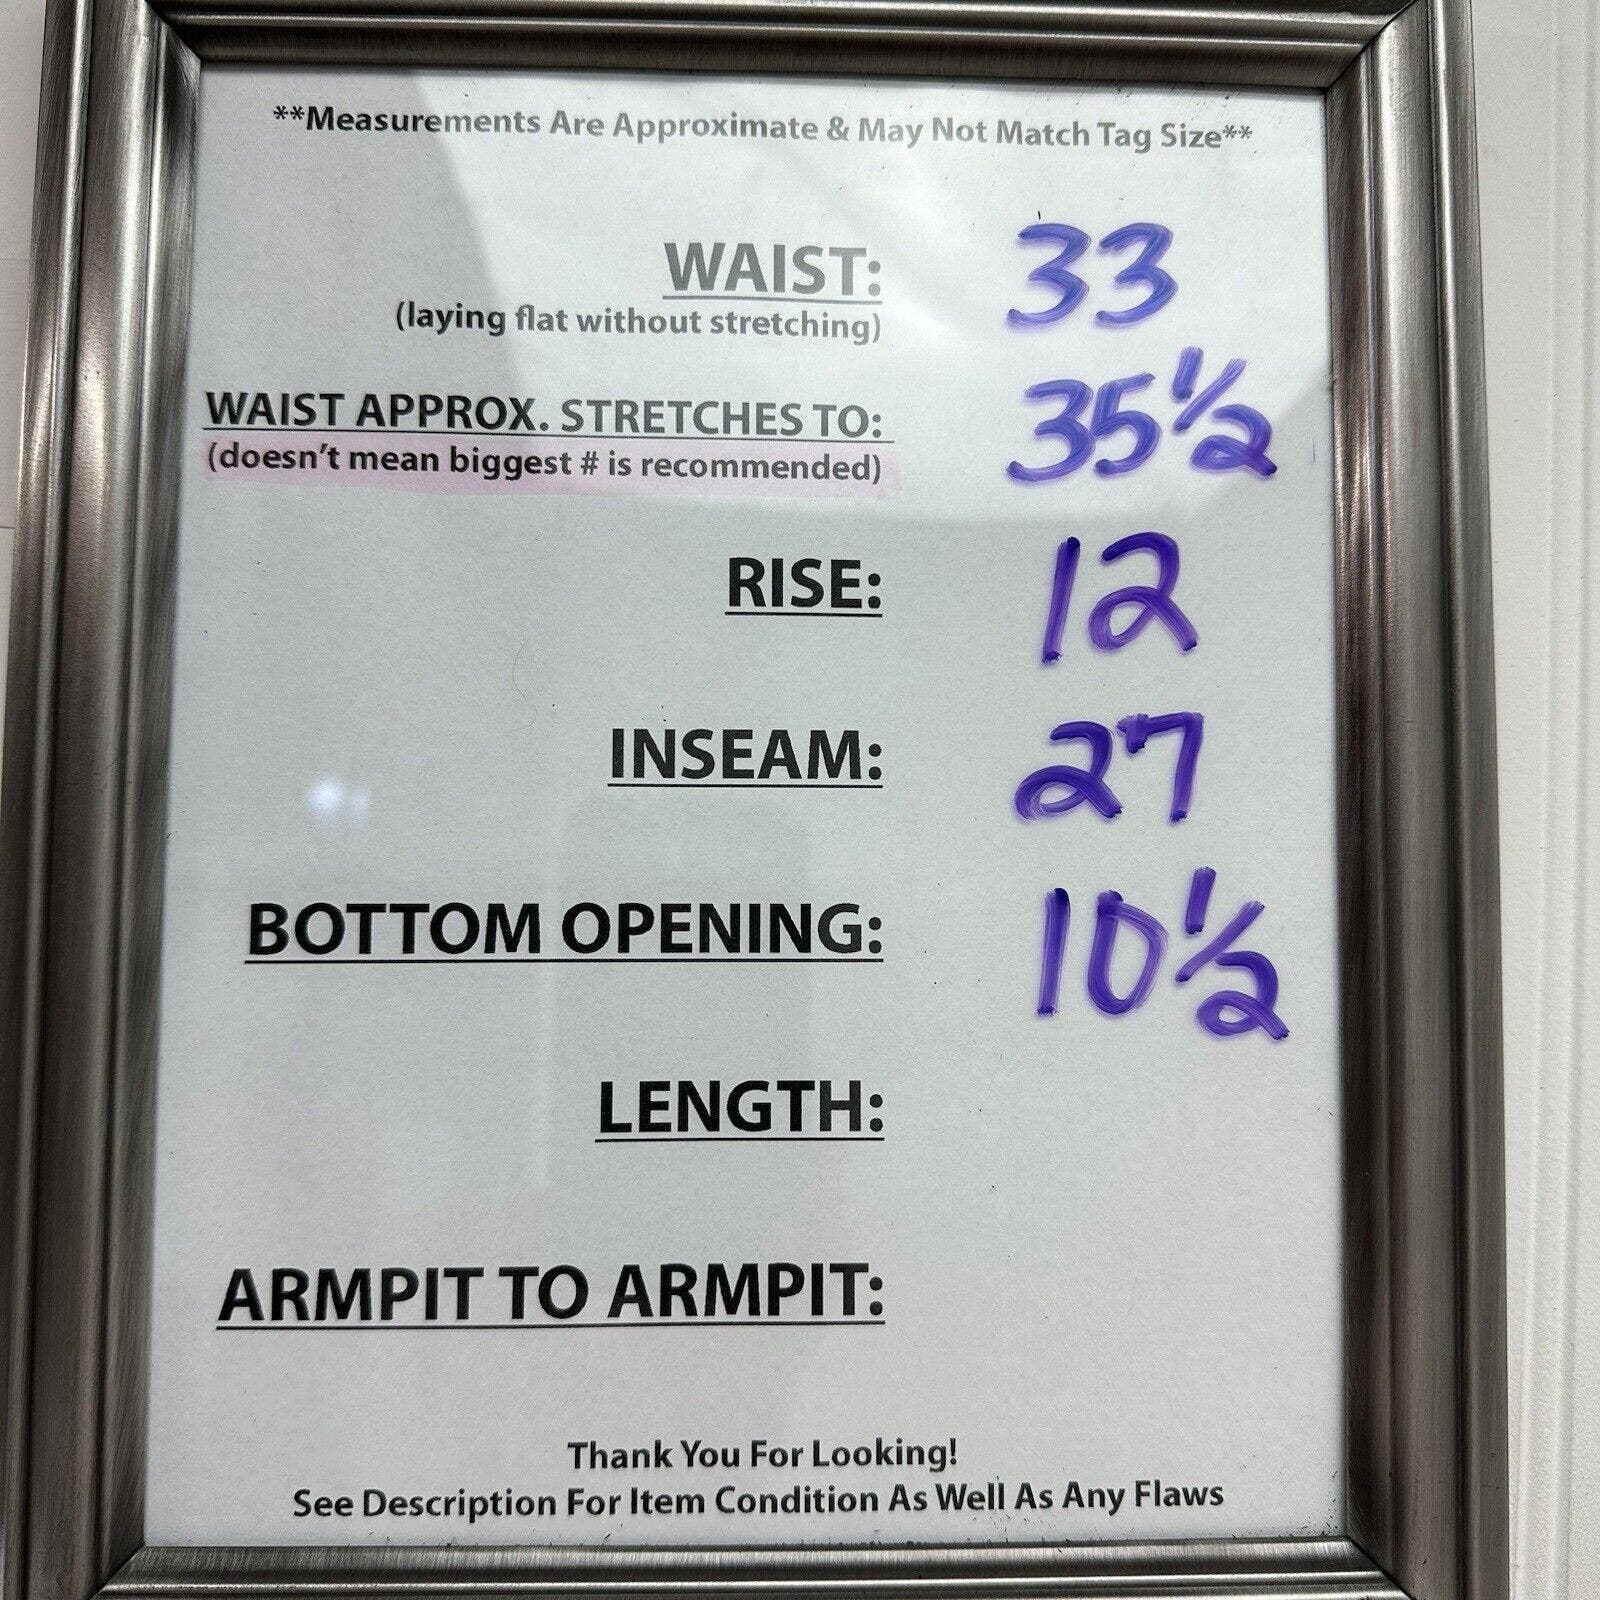 **Measurements Are Approximate & May Not Match Tag Size**
WAIST: 33
(laying flat without stretching)
WAIST APPROX. STRETCHES TO: 35 1/2
(doesn't mean biggest # is recommended)
RISE: 12
INSEAM: 27
BOTTOM OPENING: 10 1/2
LENGTH:
ARMPIT TO ARMPIT:
Thank You For Looking!
See Description For Item Condition As Well As Any Flaws